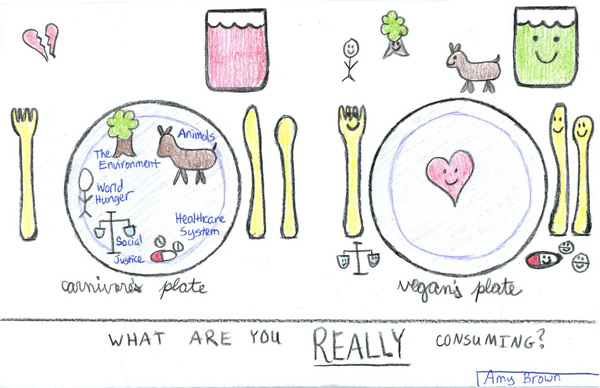 Animals
The
Environment
World
Hunger
Healthcare
System
Social
Justice
carnivore's plate
vegan's plate
WHAT ARE YOU REALLY CONSUMING?
Amy Brown